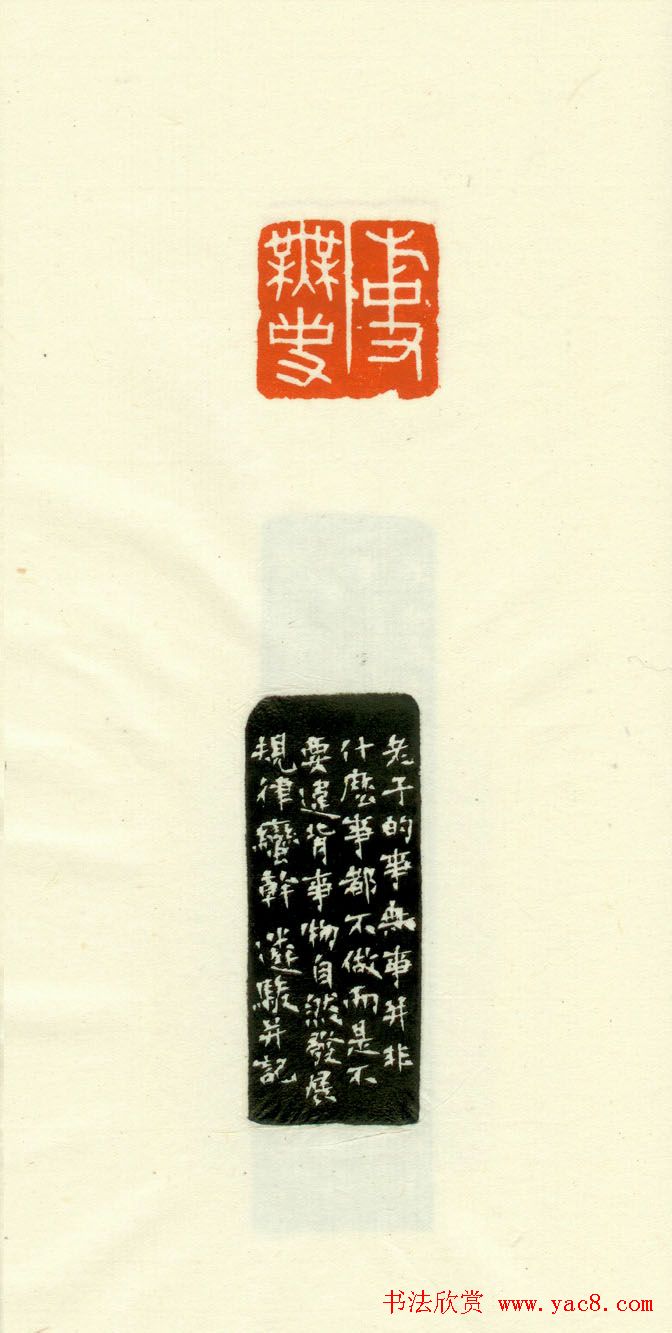 事無事
老子的事無事并非
什麽事都不做而是不
要違背事物自然發展
規律蠻幹 駿并記
书法欣赏 www.yac8.com